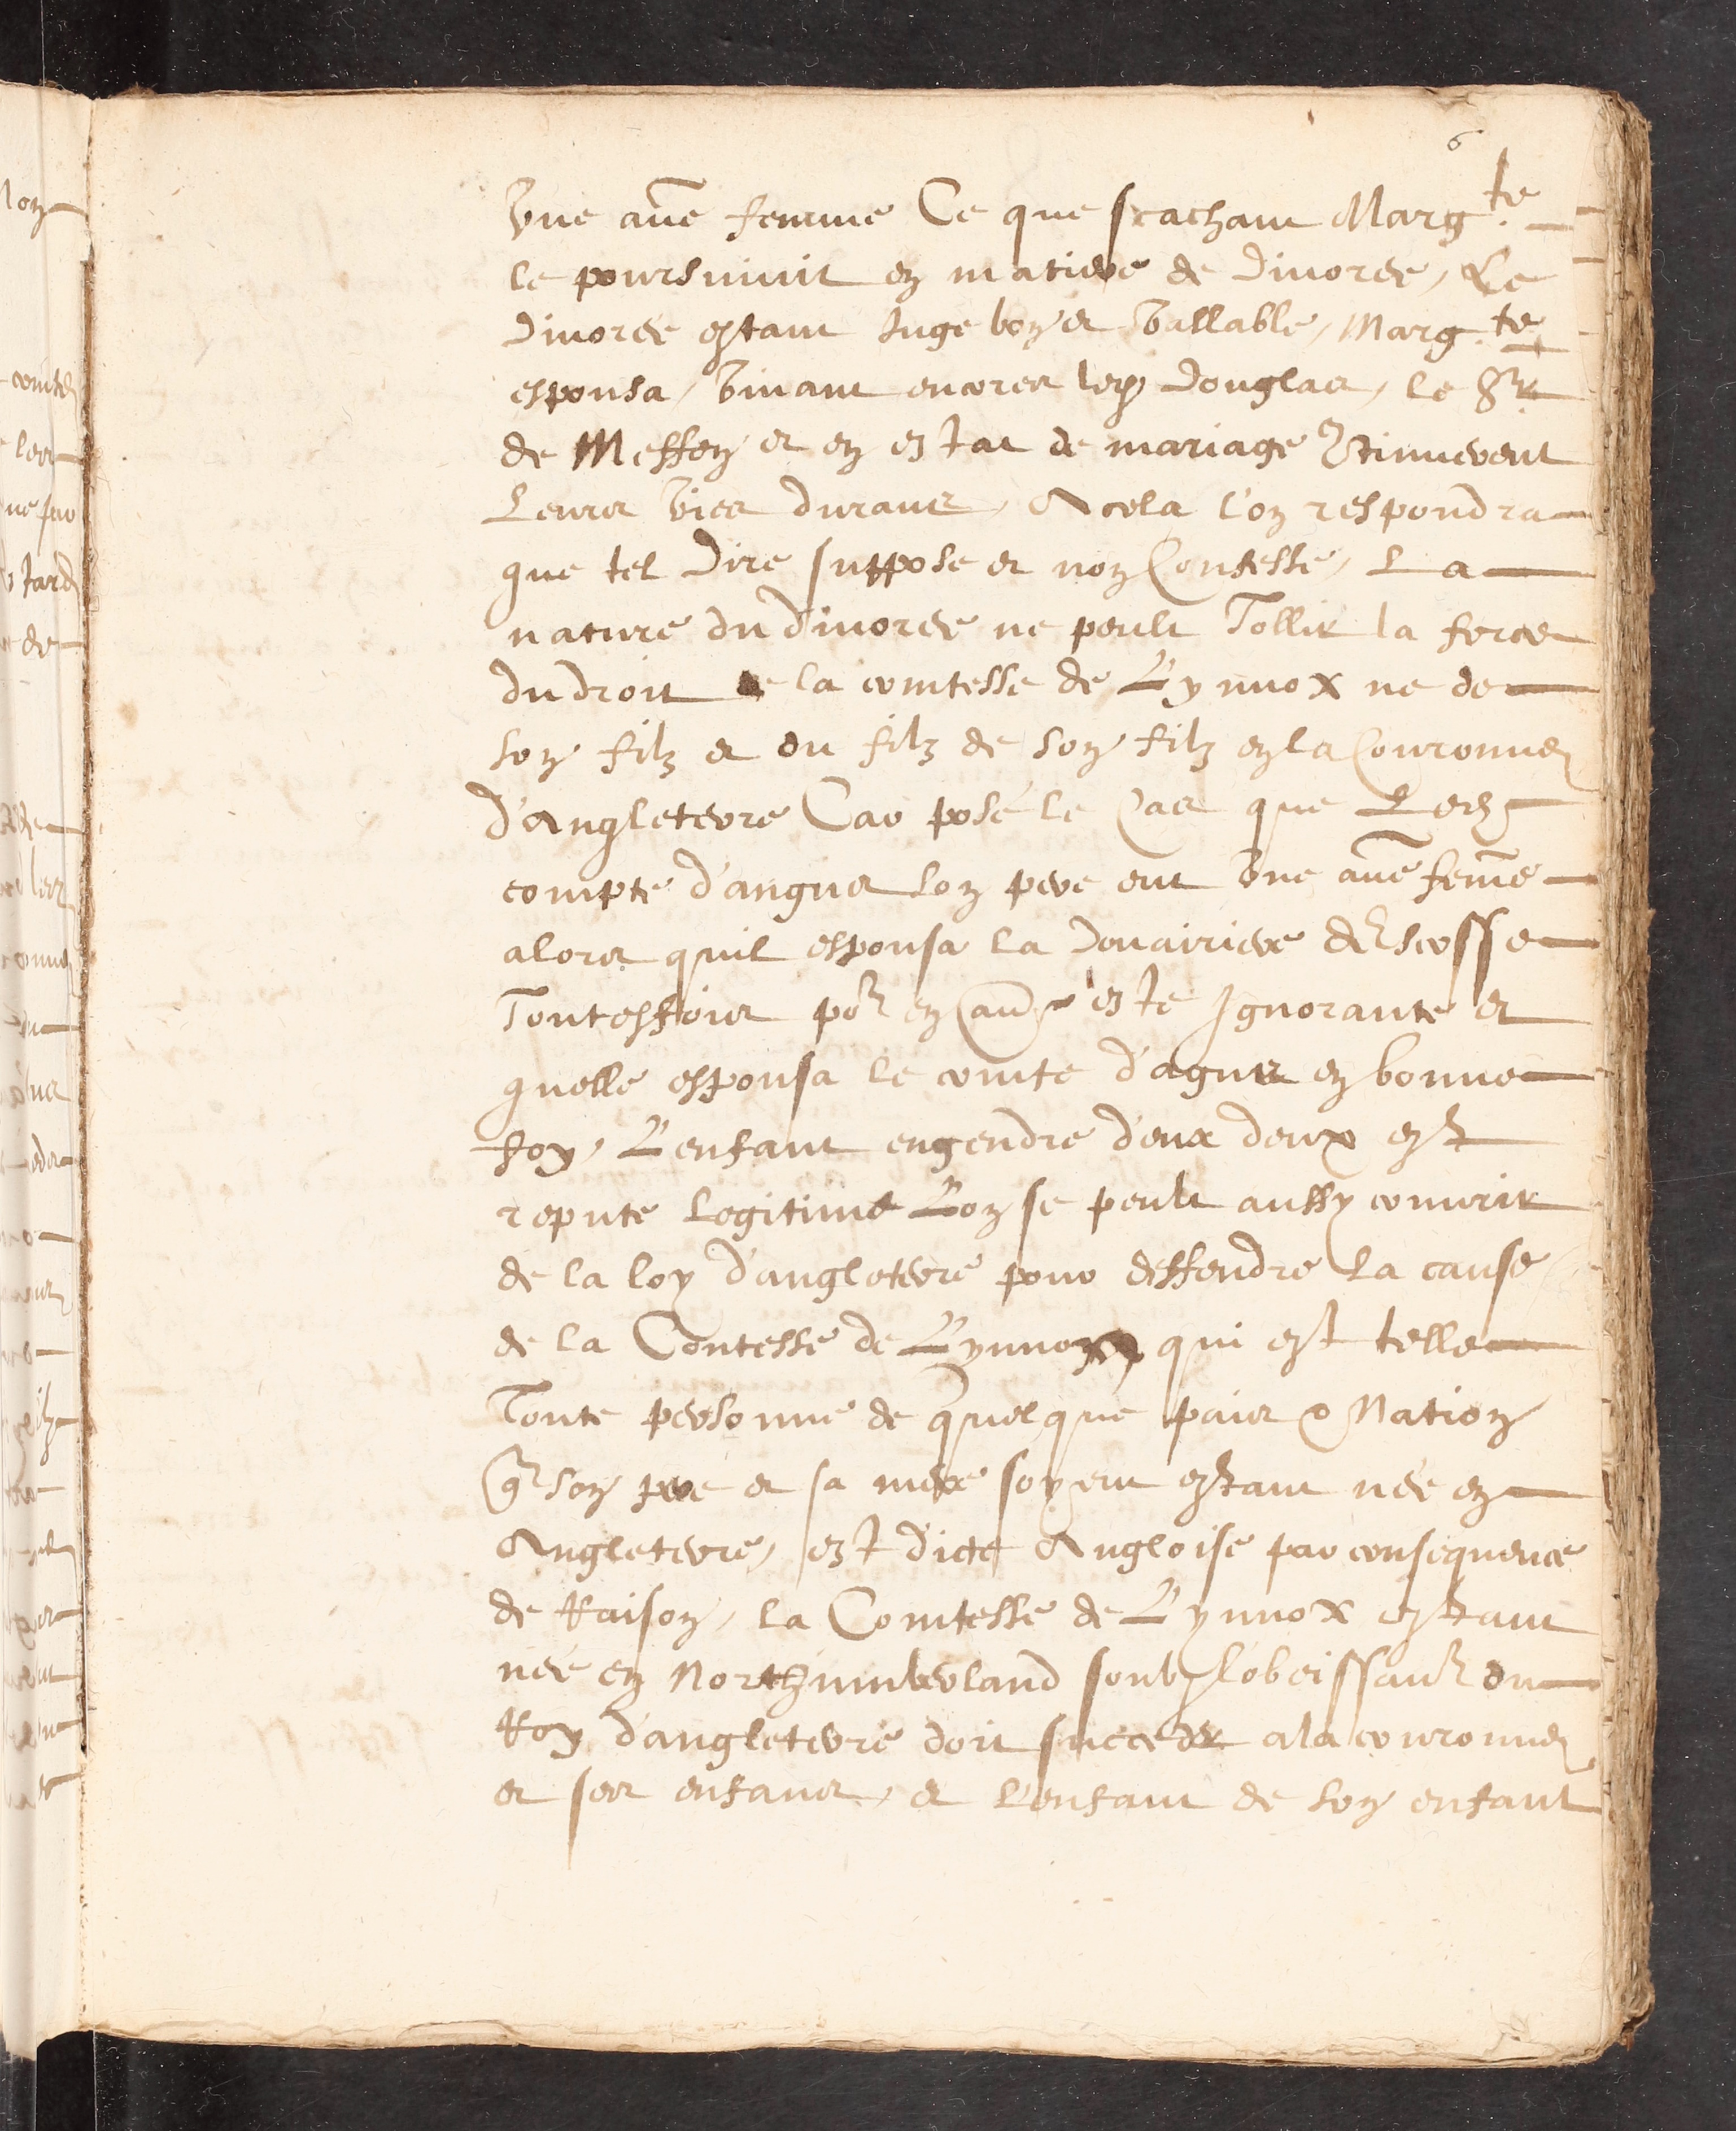 6
Vne aut̃e femme Ce que scachant Marg.te
le poursuiuit en matiere de Diuorce, Le
Diuorce estant Juge bon et Vallable, Marg.te
espousa, Viuant encores led. Douglas, le Sr.
de Meffen et en estat de mariage 9tinuerent
Leurs Vies durant, A cela l'on respondra
que tel Dire suppose et non Confesse, La
nature du diuorce ne peult Tollir la force
du droit de la comtesse de Lynnox ne de
son filz et du filz de son filz en la Couronne
d'Angleterre Car posé le Cas que Led.
compte d'angus son pere eut Vne aut̃e fem̃e
alors quil espousa la Douairiere d'Escosse
Touteffois po.r en auoir este Ignorante et
quelle espousa le comte d'agus en bonne
foy, L'enfant engendre d'eux deux est
repute Legitime Lon se peult aussy couurir
de la loy d'angleterre pour deffendre La cause
de la Contesse de Lynnox qui est telle
Toute personne de quelque pais & Nation
q̃ son pere et sa mere soyent estant née en
Angleterre, est dicte Angloise par consequence
de Raison, la Comtesse de Lynnox estant
née en Northumberland soubz l'obeissan̄ du
Roy d'angleterre doit succeder a la couronne
et ses enfans, et L'enfant de son enfant